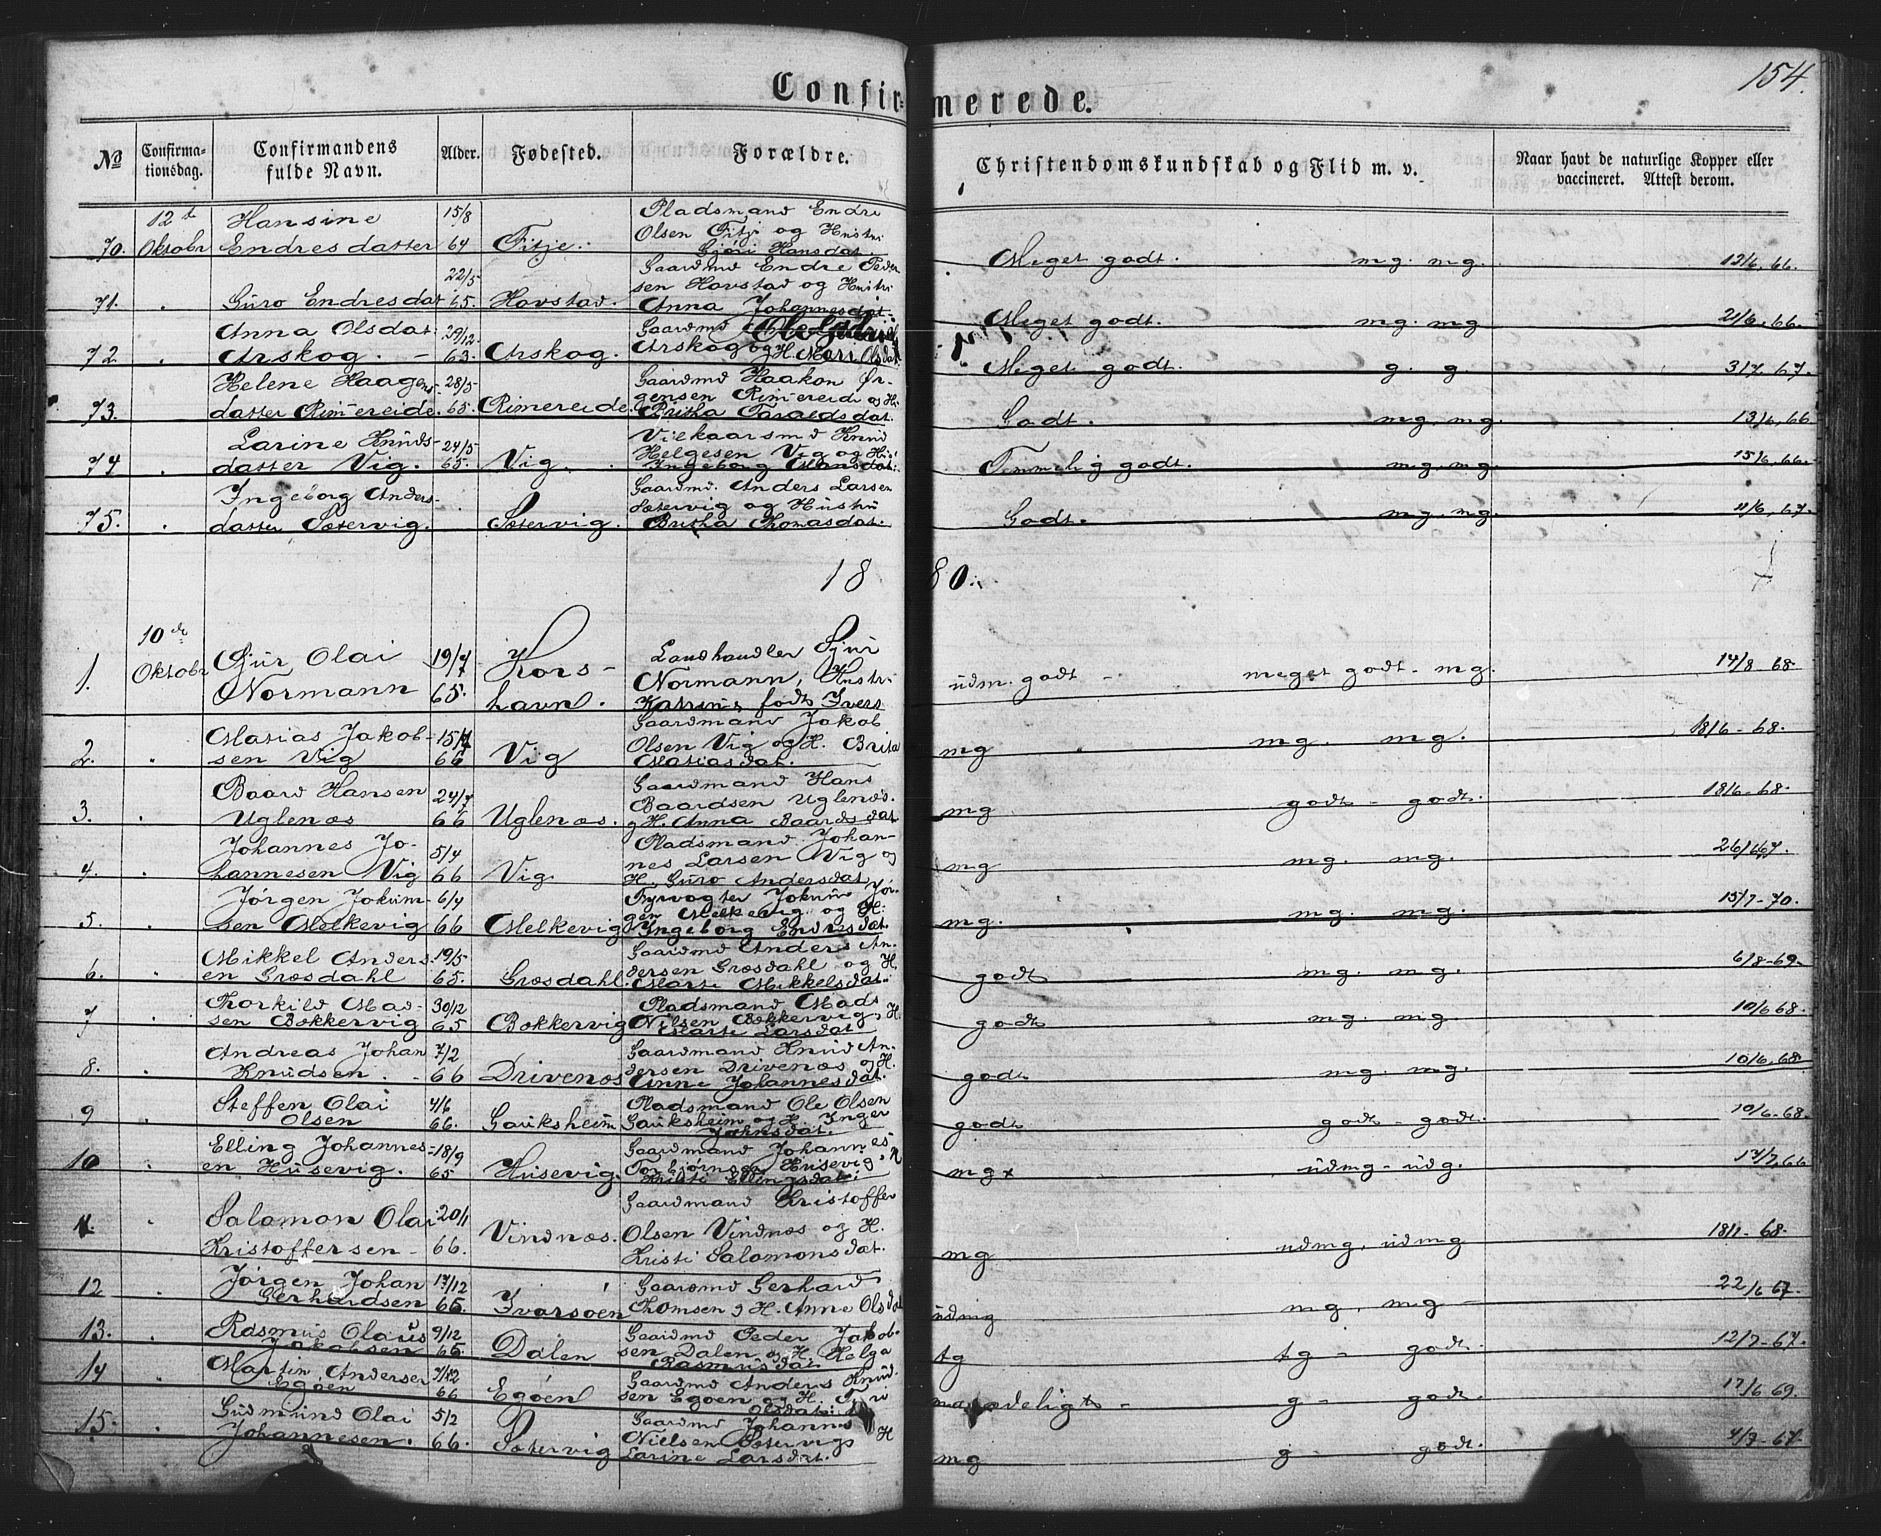 154.
Confir= merede.
№ Confirma-tionsdag. Confirmandens fulde Navn. Alder. Fødested. Forældre. Christendomskundskab og Flid m. v. Naar havt de naturlige Kopper eller vaccineret. Attest derom.
12t Hansine 15/8 Pladsmand Endre
Olsen Fitje og Hustru
70. Oktobr Endresdatter 64 Fitje. Gjøri Hansdat. Meget godt. mg. mg. 12/6, 66.
22/5 Gaardmd Endre Peder
sen Havstad og Hustru
71. Guro Endresdat 65. Havstad. Anna Johannesdat. Meget godt. mg. mg 21/6, 66.
Anna Olsdat. 29/12. Gaardmd
72. Arskog. 63. Arskog. Arskog og H. Mari Olsdat Meget godt. g. g. 3/7, 67.
Helene Haagens 28/5 Gaardmd Haakon Ør-
gensen Rimmereide og H
73. datter Rimmereide. 65. Rimereide. Britha Taraldsdat. Godt. mg, mg. 13/6, 66
Larine Knuds- 24/5 Vilkaarsmd Knud
Helgesen Vig og H
74 datter Vig. 65. Vig. Ingeborg Mansdat. Temmelig godt. mg, mg. 15/6, 66.
Ingeborg Anders- Gaardmd. Anders Larsen
Sætervig og Hustru
75. datter Sætervig. Sætervig. Britha Thomasdat. Godt. mg, mg. 11/6, 67.
18 80.
10de Sjur Olai 19/7 Kors- Landhandler Sjur
1. Oktobr Normann 65. havn. Normann, Hustru udm. godt - meget godt - mg. 14/8 - 68
Katrine født Ivers
Matias Jakob- 15/7 Gaardmand Jakob
2. sen Vig 66 Vig Olsen Vig og H. Brita mg mg. mg. 18/6 - 68.
Matiasdat.
Baard Hansen 24/7 Gaardmand Hans
Baardsen Uglenæs.
3. Uglenæs 66 Uglenæs. og H. Anna Baardsdat mg godt - godt. 18/6 - 68.
Johannes Jo- 5/4 Pladsmand Johan-
nes Larsen Vig og
4. hannesen Vig 66 Vig. H. Guro Andersdat mg mg. mg. 26/6 67.
Jørgen Jokum- 6/4 Fyrvogter Jokum Jør-
gen Melkevig og H.
5. sen Melkevig 66 Melkevig Ingeborg Endresdat. mg. mg. mg. 15/7 - 70.
Mikkel Anders- 19/5 Gaardmd Anders An-
dersen Græsdahl og H.
6. en Græsdahl 65. Græsdahl. Marte Mikkelsdat. godt mg. mg. 6/8 - 69.
Thorkild Mad- 30/12 Pladsmand Mads
7 sen Bokkervig 65 Bokkervig Nilsen Bokkervig, H. godt mg. mg 10/6 68.
Marte Larsdat
Andreas Johan 7/2 Gaardmand Knud An-
dersen Drivenæs og H.
8. Knudsen. 66 Drivenæs Anne Johannesdat. godt mg. mg. 10/6, 68.
Steffen Olai 4/6 Pladsmand Ole Olsen
9 Olsen 66. Gauksheim Gauksheim og H. Inger godt godt - godt. 10/6 - 68.
Jahnsdat.
Elling Johannes- 18/9 Gaardmand Johannes
10 en Husevig. 65 Husevig. Torbjørnsen Husevig, H mg udmg - udg. 17/7, 66
Kristi Ellingsdat.
Salomon Olai 20/1 Gaardmand Kristoffer
11. Vindnæs. Olsen Vindnæs og H.
Kristoffersen - 66. Kristi Salomonsdat. mg udmg, udmg 18/1 - 68.
Jørgen Johan 17/12 Gaardmd Gerhard
12 Gerhardsen 65. Ivarsøen Thomsen og H. Anne Olsdat udmg mg, mg 22/6 67.
Rasmus Olaus 9/12 Gaardmd Peder Jakob-
13. Jakobsen 65. Dalen sen Dalen og H. Helga tg tg - godt. 12/7 - 67.
Rasmusdat
Martin Andersen 7/12 Gaardmd Anders Knud-
14 Egøen 66 Egøen sen Egøen og H. g - godt. 17/6 69.
Olsdat.
Gudmund Olai 5/2 Gaardmd Johannes
15. Johannesen. 66. Sætervig Nielsen Sætervig, H mg g - godt. 4/7 - 67.
Larine Larsdat.